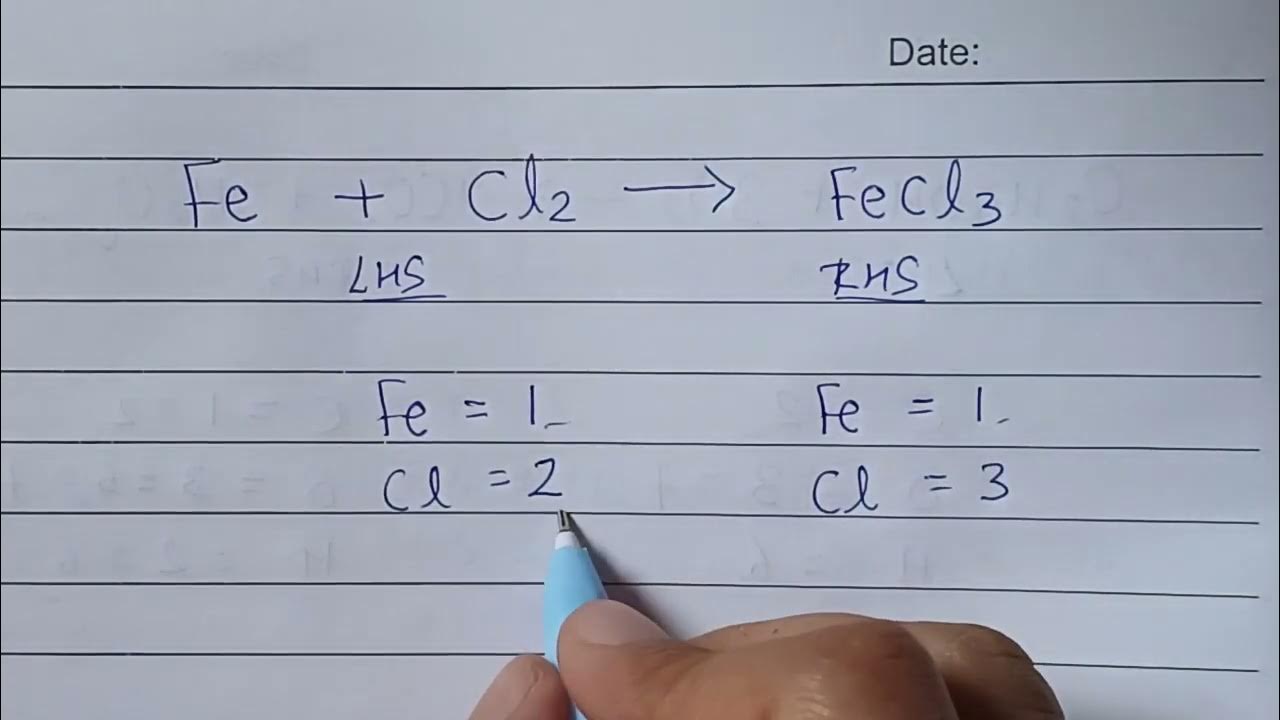 Date:
Fe + Cl₂ ⟶ FeCl₃
LHS RHS
Fe = 1 Fe = 1
Cl = 2 Cl = 3